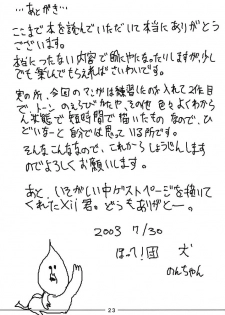 …あとがき…
ここまで本を読んでいただいて本当にありがとう
ございます。
本当につたない内容で恥になったりしますが、少し
でも楽しんでもらえればさいわいです。
実の所、今回のマンガは練習に入れて2作目
で、トーンのえらびかたや、その他色々よくわから
ん状態で短時間で描いたものなので、ひ
どいなーと自分では思っている所です。
そんなこんななので、これからしょうじんします
のでよろしくお願いします。
あと、いそがしい中ゲストページを描いて
くれたXij君。どうもありがとー。
2003 7/30
ほえ!団 犬
のんちゃん
23